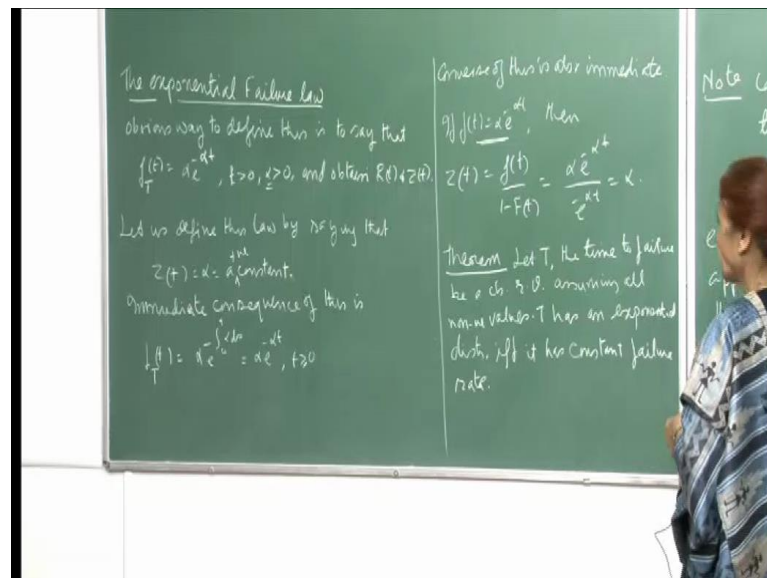 The exponential Failure law
obvious way to define this is to say that
f_T(t) = αe^{-αt}, t>0, α>0, and obtain R(t) & Z(t).
Let us define this law by saying that
Z(t) = α = a +ve constant.
Immediate consequence of this is
f_T(t) = αe^{-∫_0^t αds} = αe^{-αt}, t≥0
Converse of this is also immediate
If f(t) = αe^{-αt}, then
Z(t) = f(t)/(1-F(t)) = αe^{-αt}/e^{-αt} = α.
Theorem Let T, the time to failure
be a ch. r.v. assuming all
non-ve values. T has an exponential
distn. iff it has constant failure
rate.
Note